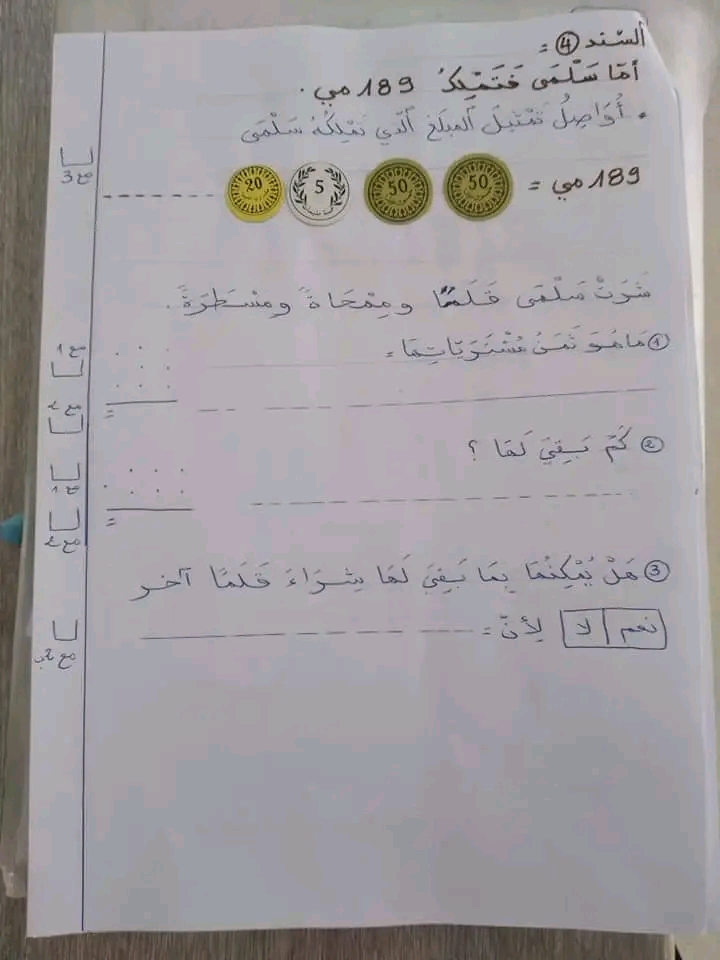 السّند ④ =
أمّا سَلْمَى فَتَمْلِكُ 189 مي.
• أُوَاصِلُ تَمْثِيلَ المبلَغِ الّذي تَمْلِكُهُ سَلْمَى
مع 3
189 مي = 50 50 5 20
شَرَتْ سَلْمَى قَلَمًا ومِمْحَاةً ومِسْطَرَةً.
① مَا هُوَ ثَمَنُ مُشْتَرَيَاتِهَا =
مع 1
=
مع 2
② كَمْ بَقِيَ لَهَا ؟
مع 1
=
مع 2
③ هَلْ يُمْكِنُهَا بِمَا بَقِيَ لَهَا شِرَاءَ قَلَمًا آخر
نعم لا لِأنّ =
مع 2ب